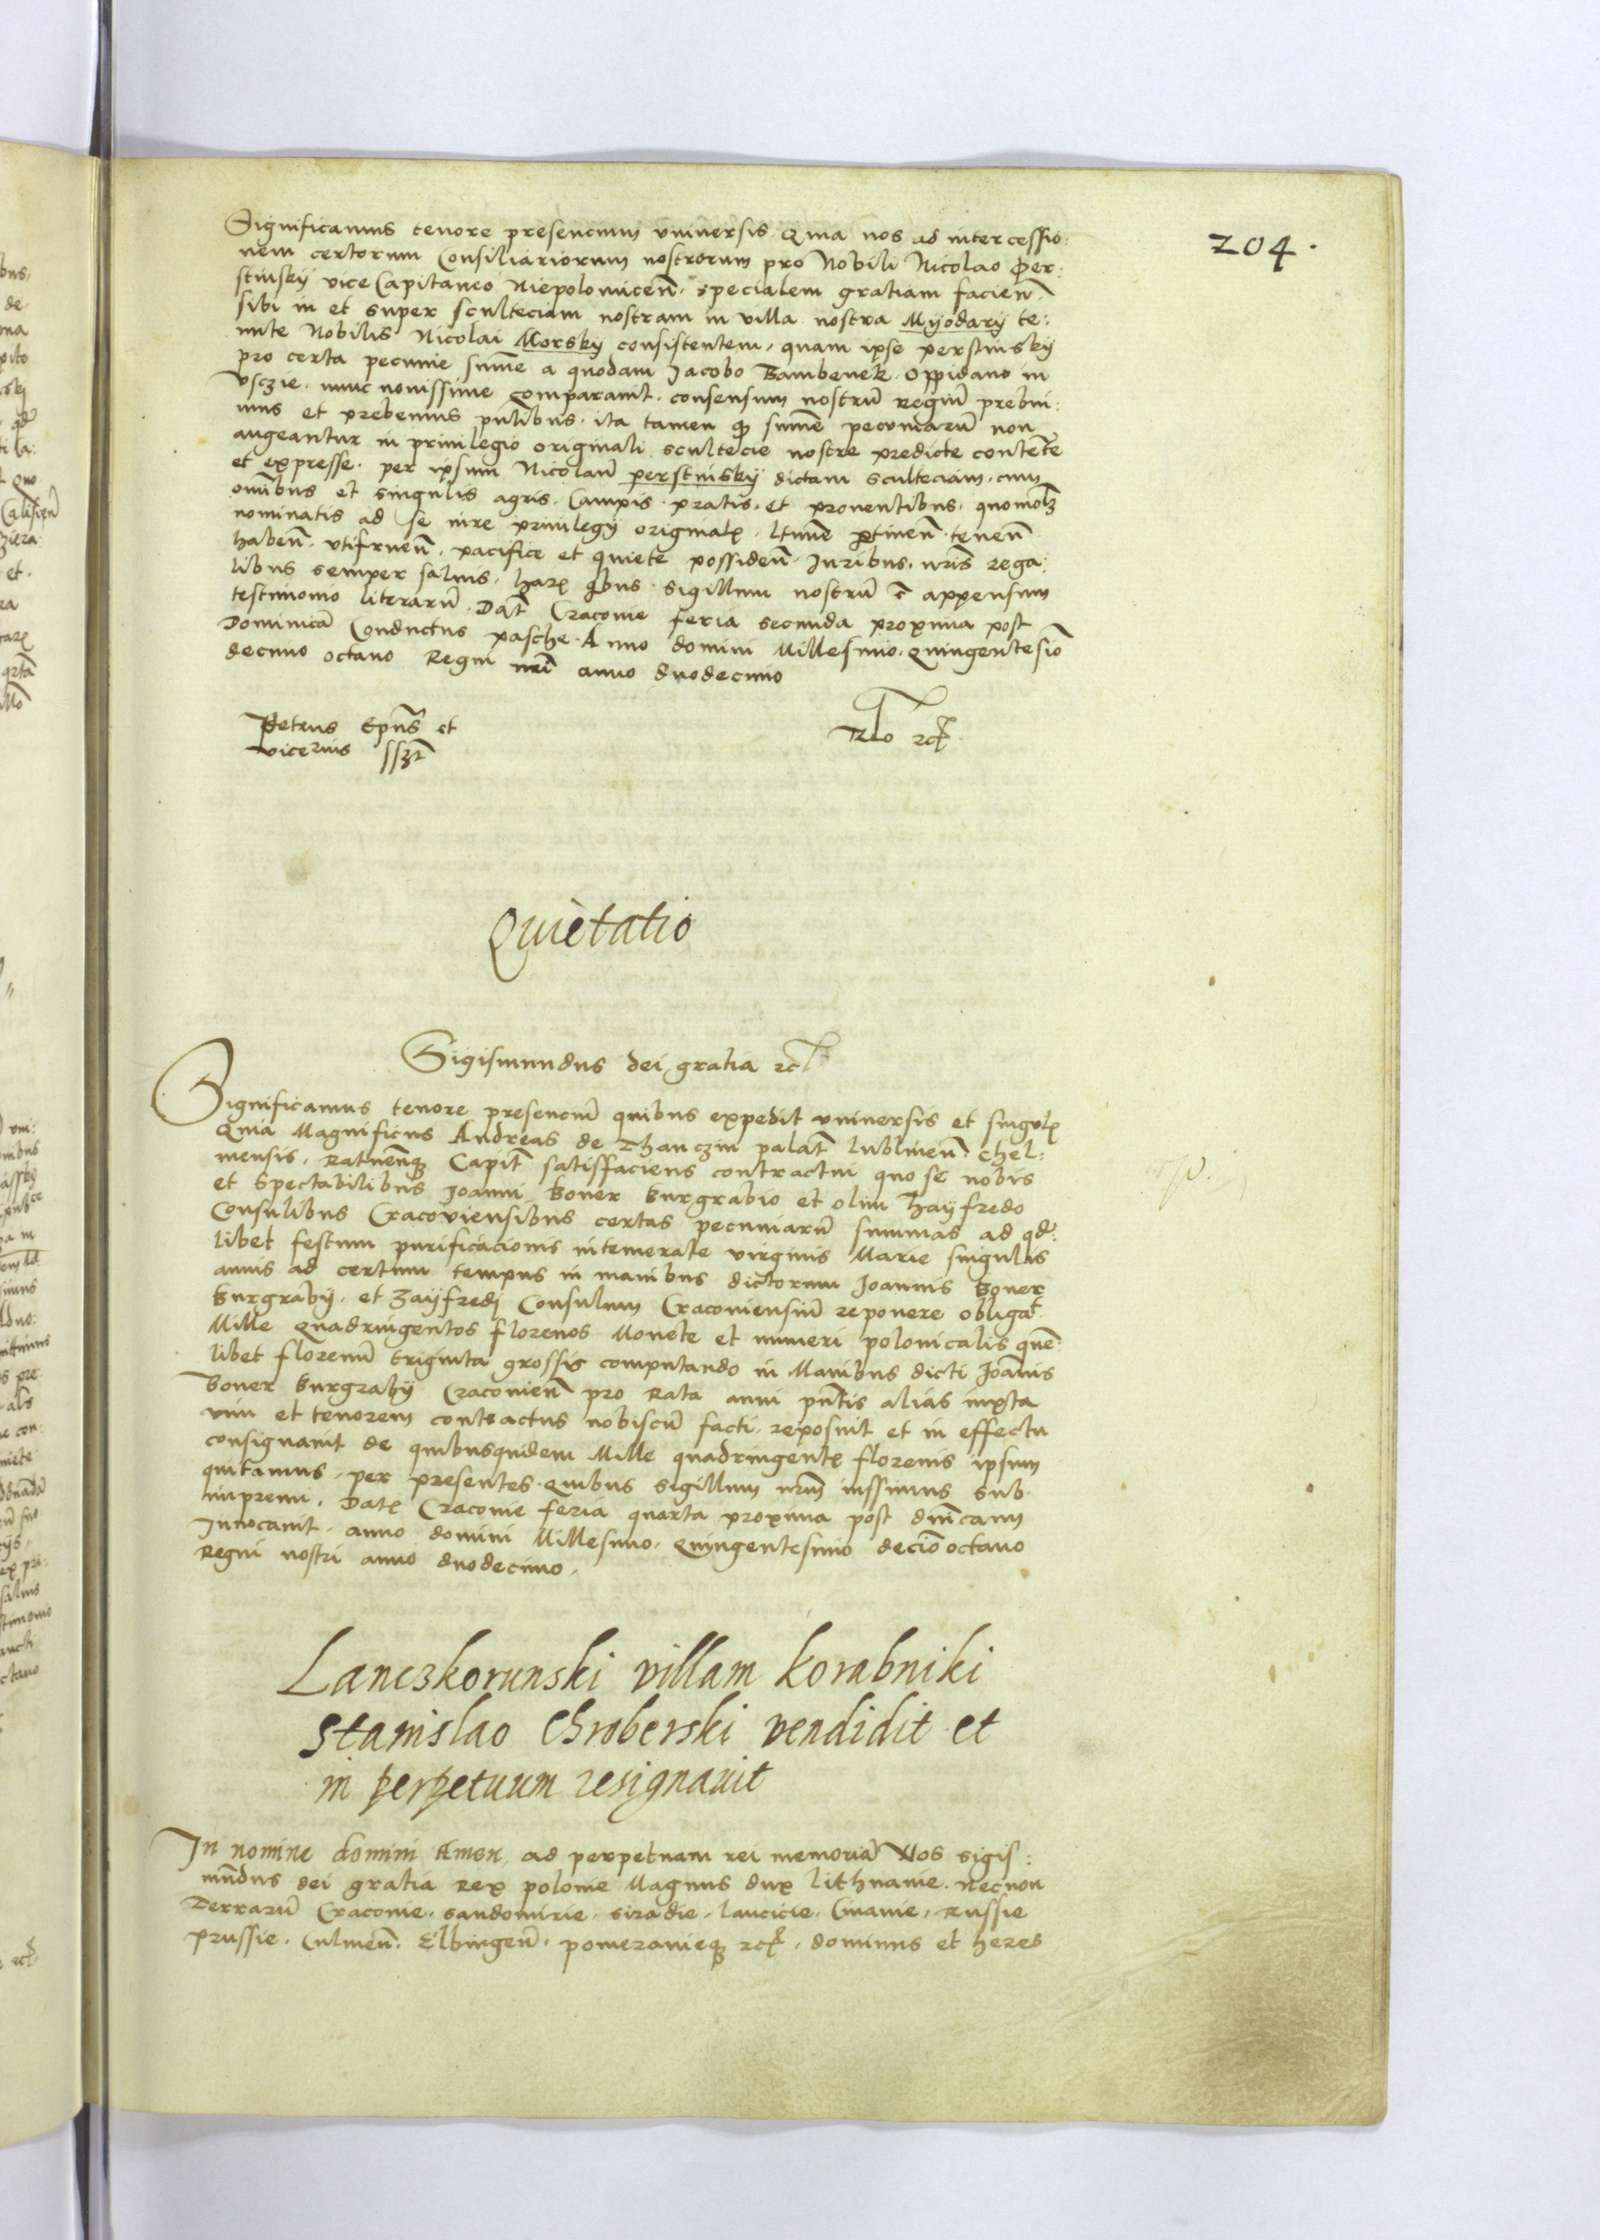 204.
Significamus tenore presencium universis Quia nos ad intercessio:
nem certorum Consiliariorum nostrorum pro Nobili Nicolao Per:
stinskÿ vice Capitaneo Niepolomicen̄. specialem gratiam facien̄.
sibi in et super sculteciam nostram in villa nostra Mÿodarÿ te:
nute Nobilis Nicolai Morskÿ consistentem, quam ipse perstinskÿ
pro certa pecunie sum̄e a quodam Jacobo Bambenek oppidano in
Usczie. nunc novissime comparavit. consensum nostrū regiū prebui:
mus et prebemus pn̄tibus. ita tamen qƺ sum̄e pecuniarū non
augeantur in privilegio originali scultecie nostre predicte contente
et expresse. per ipsum Nicolaū perstinskÿ dictam sculteciam, cum
om̄ibus et singulis agris. Campis. pratis. et proventibus. quomolƺ
nominatis ad se iure privilegÿ originalꝭ. ltime ptinen̄. tenen̄
haben̄. utifruen̄. pacifice et quiete possiden̄. Juribus. nr̄is rega:
libus semper salvis. harꝭ qbus sigillum nostrū ē appensum
testimonio literarū. Dat̄ Cracovie feria secunda proxima post
Dominicā Conductus pasche. Anno domini Millesimo. quingentesīo
decimo octavo Regni nr̄i anno duodecimo
Petrus Ep̄us et
vicecanus sszt
Rlo rcꝭ.
Quietatio
Sigismundus dei gratia rcꝭ
Significamus tenore presenciū quibus expedit universis et singulꝭ
Quia Magnificus Andreas de Thanczin palat̄ lublinen̄. Chel:
mensis. Ratnen̄qƺ Capit̄ satisfaciens contractui quo se nobis
et Spectabilibus Joanni Boner Burgrabio et olim Zaÿfredo
Consulibus Cracoviensibus certas pecuniarū summas ad qd:
libet festum purificacionis intemerate virginis Marie singulis
annis ad certum tempus in manibus dictorum Joannis Boner
Burgrabÿ. et Zaÿfredi Consulum Cracoviensiū reponere obligat̄
Mille Quadringentos florenos Monete et numeri polonicalis quē:
libet florenū triginta grossis computando in Manibus dicti Joānis
Boner Burgrabÿ Cracovien̄ pro Rata anni pn̄tis alias iuxta
vim et tenorem contractus nobiscū facti. reposuit et in effectu
consignavit de quibusquidem Mille quadringentꝭ florenis ipsum
quitamus. per presentes. Quibus sigillum nr̄um iussimus sub
imprimi. Datꝭ Cracovie feria quarta proxima post dn̄icam
Invocavit. anno domini Millesimo. Quingentesimo deciō octavo
Regni nostri anno duodecimo.
Lanczkorunski villam Korabniki
Stanislao Chroberski vendidit et
in perpetuum resignavit
In nomine domini Amen. ad perpetuam rei memoriā Nos Sigis:
mūdus dei gratia Rex polonie Magnus dux lithuanie. necnon
Terrarū Cracovie. sandomirie. siradie. lancicie. Cuiavie. Russie
Prussie. Culmen̄. Elbingen̄. pomeranieqƺ rcꝭ. dominus et heres